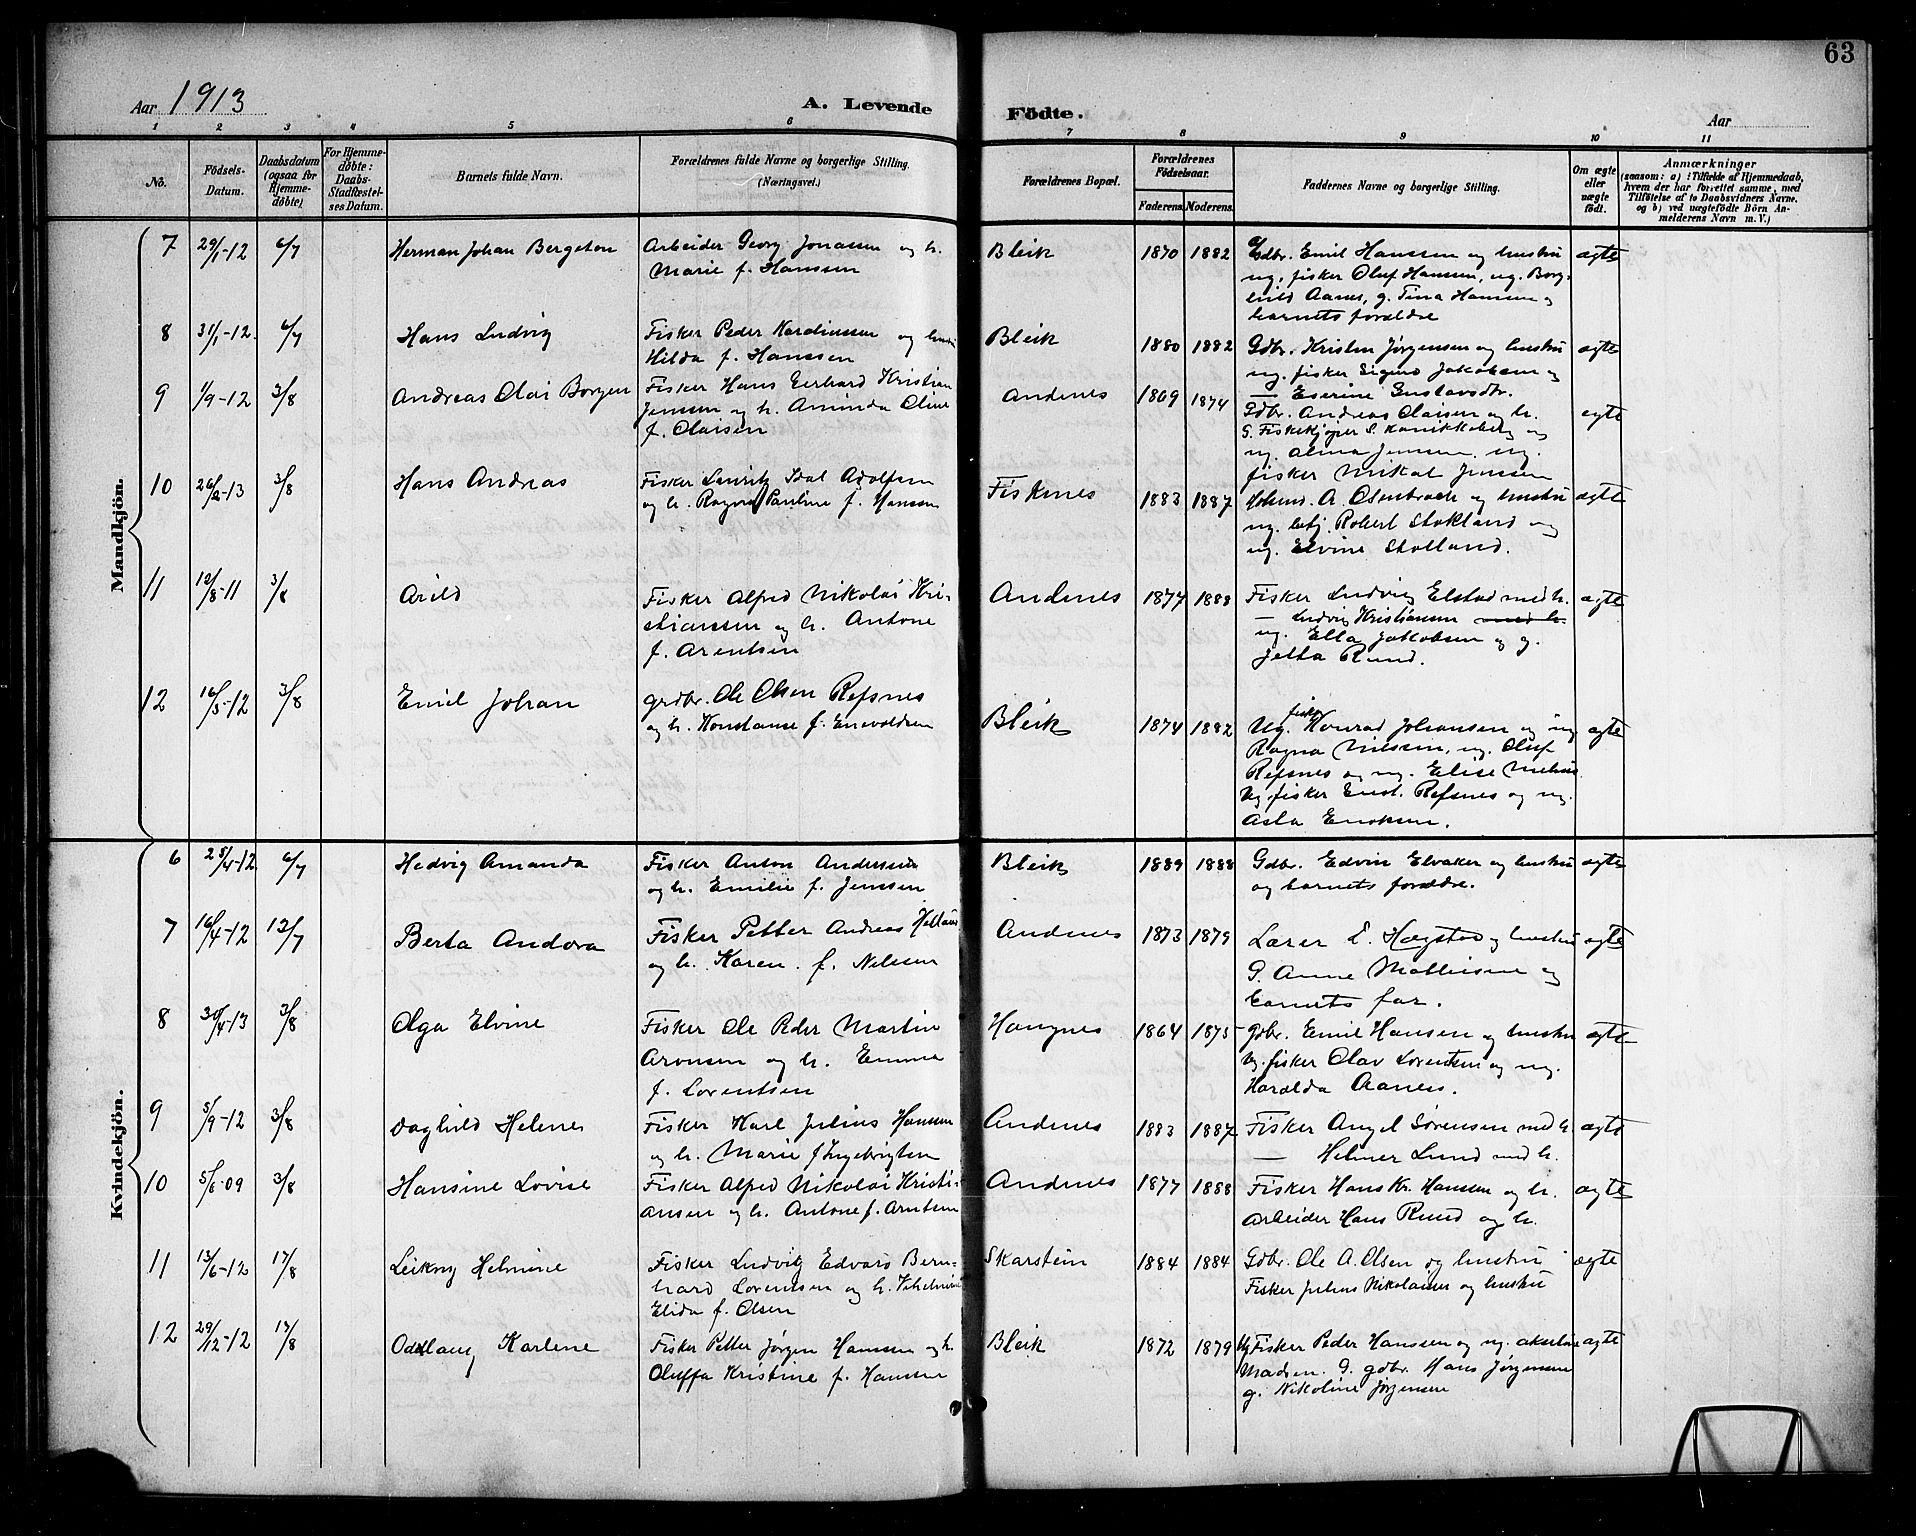 63
Aar 1913
A. Levende
Födte.
Aar
1 2 3 4 5 6 7 8 9 10 11
No.
Födsels-
Datum.
Daabsdatum
(ogsaa for
Hjemme-
döbte)
For Hjemme-
döbte:
Daabs-
Stadfæstel-
ses Datum.
Barnets fulde Navn.
Forældrenes fulde Navne og borgerlige Stilling.
(Næringsvei.)
Forældrenes Bopæl.
Forældrenes
Födselsaar.
Faderens.
Moderens.
Faddernes Navne og borgerlige Stilling.
Om ægte
eller
uægte
födt.
Anmærkninger
(saasom: a) i Tilfælde af Hjemmedaab,
hvem der har forrettet samme, med
Tilföielse af to Daabsvidners Navne.
og b) ved uægtefödte Börn An-
melderens Navn m. V.)
Mandkjön.
7 29/1-12 6/7 Herman Johan Bergston
Arbeider Georg Jonassen og h.
Marie f. Hanssen
Bleik 1870 1882
Gdbr. Emil Hanssen og hustru
ug. fisker Oluf Hansen, ug. Borg-
hild Aanes, g. Tina Hansen og
barnets forældre
ægte
8 31/1-12. 6/7 Hans Ludvig
Fisker Peder Nardiussen og hustru
Hilda f. Hanssen
Bleik 1880 1882
Gdbr. Kristen Jørgensen og hustru
ug. fisker Sigurd Jakobsen og
— Eserine Gustavsdtr.
ægte
9 1/9-12 3/8 Andreas Olai Borgen
Fisker Hans Gerhard Kristian
Jenssen og h. Aminda Oline
f. Olaisen
Andenes 1869 1874
Gdbr. Andreas Olaisen og h.
G. Fiskekjøper S. Kanikkeberg og
ug. Alma Jensen. ug.
fisker Mikal Jenssen
ægte
10 26/2-13 3/8 Hans Andreas
Fisker Lauritz Isal Adolfsen
og h. Ragna Pauline f. Hansen
Fiskenes 1883 1887
A. Osenbrock og hustru
ug. Robert Stokland og
ug. Elvine Stolland.
ægte
11 12/8-11 3/8 Arild
Fisker Alfred Nikolai Kri-
stianssen og h. Antone
f. Arentsen
Andenes 1877 1888
Fisker Ludvig Elstad med h.
— Ludvig Kristiansen med h.
ug. Ella Jakobsen og g.
Jetta Rund.
ægte
12 16/3-12 3/8 Emil Johan
grdbr. Ole Olsen Refsnes
og h. Konstanse f. Enevoldsen
Bleik 1874 1882
Ug. fisker Konrad Johansen og ug
Ragna Nilssen, ug. Oluf
Refsnes og ug. Elise
Ug. fisker Refsnes og ug.
Asta Enoksen.
ægte
Kvindekjön.
6 25/4-12 6/7 Hedvig Amanda
Fisker Anton Anderssen
og h. Emilie f. Jenssen
Bleik 1889 1888
Gdbr. Edvin Elvaker og hustru
og barnets forældre.
ægte
7 16/4-12 13/7 Berta Andora
Fisker Petter Andreas
og h. Karen f. Nilssen
Andenes 1873 1879
Lærer E. Hægstad og hustru
G. Anne Mathisen og
barnets far.
ægte
8 30/4-13 3/8 Olga Elvine
Fisker Ole Peder Martin
Aronsen og h. Emma
f. Lorentsen
Haugnes 1864 1875
Gdbr. Emil Hansen og hustru
Ug. fisker Olav Lorentsen og ug.
Haralda Aanes.
ægte
9 5/9-12 3/8 Daghild Helene
Fisker Karl Julius Hansen
og h. Marie f. Ingebrigtsen
Andenes 1883 1887
Fisker Angel Sørensen med h.
— Helmer Lund med h.
ægte
10 5/6-09 3/8 Hansine Lovise
Fisker Alfred Nikolai Kristi-
ansen og h. Antone f. Arntsen
Andenes 1877 1888
Fisker Hans Kr. Hansen og h.
Arbeider Hans Rund og h.
ægte
11 13/6-12 17/8 Leikny Helmine
Fisker Ludvig Edvard Bern-
hard Lorentsen og h. Vilhelmine
Elida f. Olsen
Skarstein 1884 1884
Gdbr. Ole A. Olsen og hustru
Fisker Julius Nikolaisen og hustru
ægte
12 29/12-12 17/8 Oddlaug Karlene
Fisker Petter Jørgen Hanssen og h.
Oluffa Kristine f. Hanssen
Bleik 1872 1879
Ug Fisker Peder Hanssen og ug. Akseline
Madsen. G. gdbr. Hans Jørgensen
g. Nikoline Jørgensen
ægte